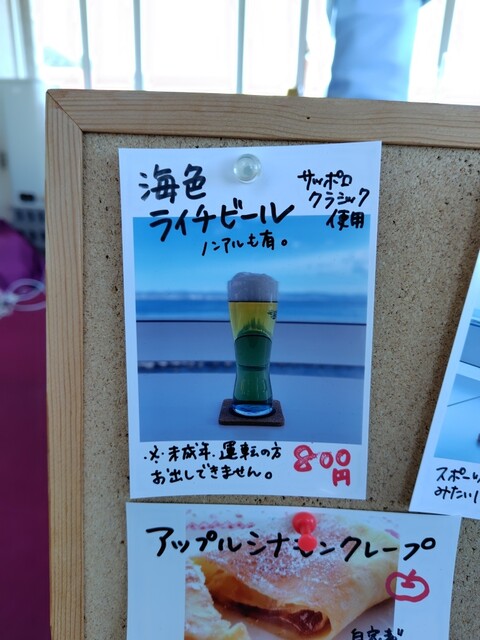 海色
ライチビール
ノンアルも有。
サッポロ
クラシック
使用
※未成年・運転の方
お出しできません。
800
円
スポー
みたい
アップルシナモンクレープ
自家製